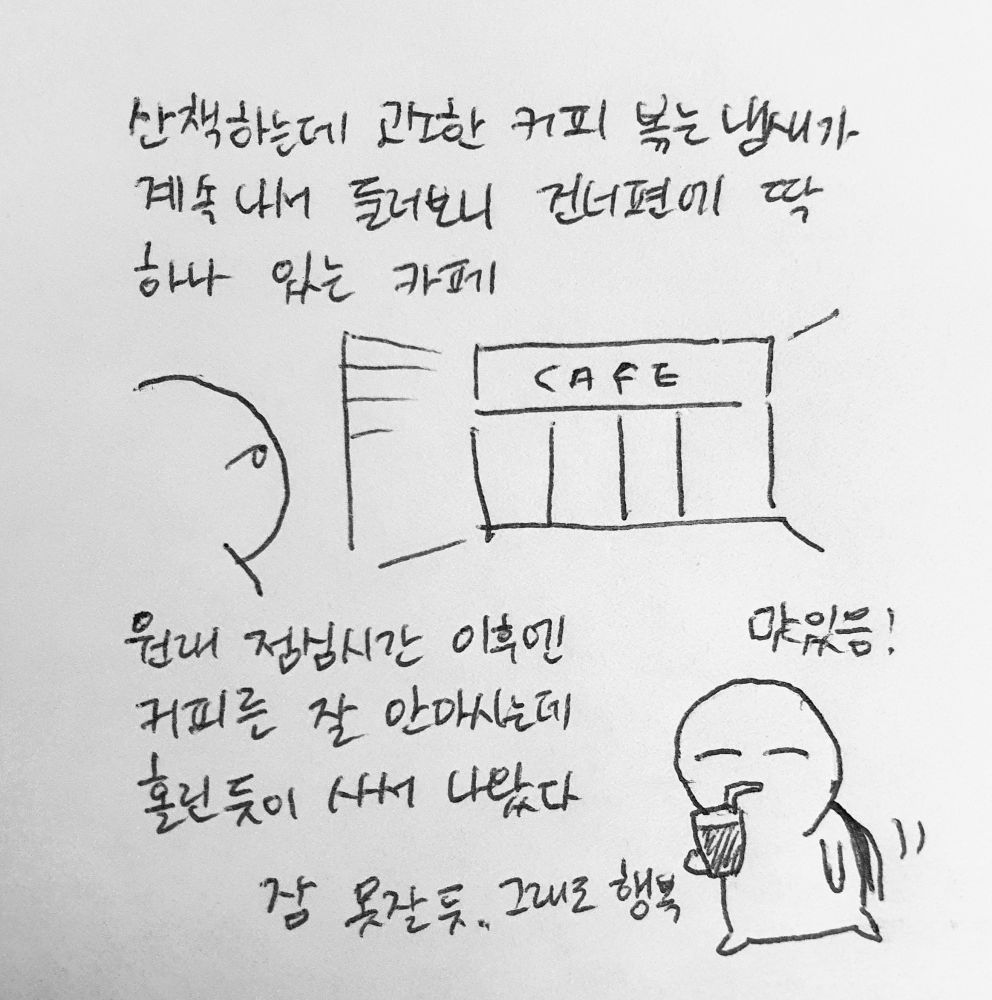 산책하는데 고소한 커피 볶는 냄새가
계속 나서 둘러보니 건너편에 딱
하나 있는 카페
CAFE
원래 점심시간 이후엔
커피를 잘 안마시는데
홀린듯이 사서 나왔다
맛있음!
잠 못잘 듯.. 그래도 행복